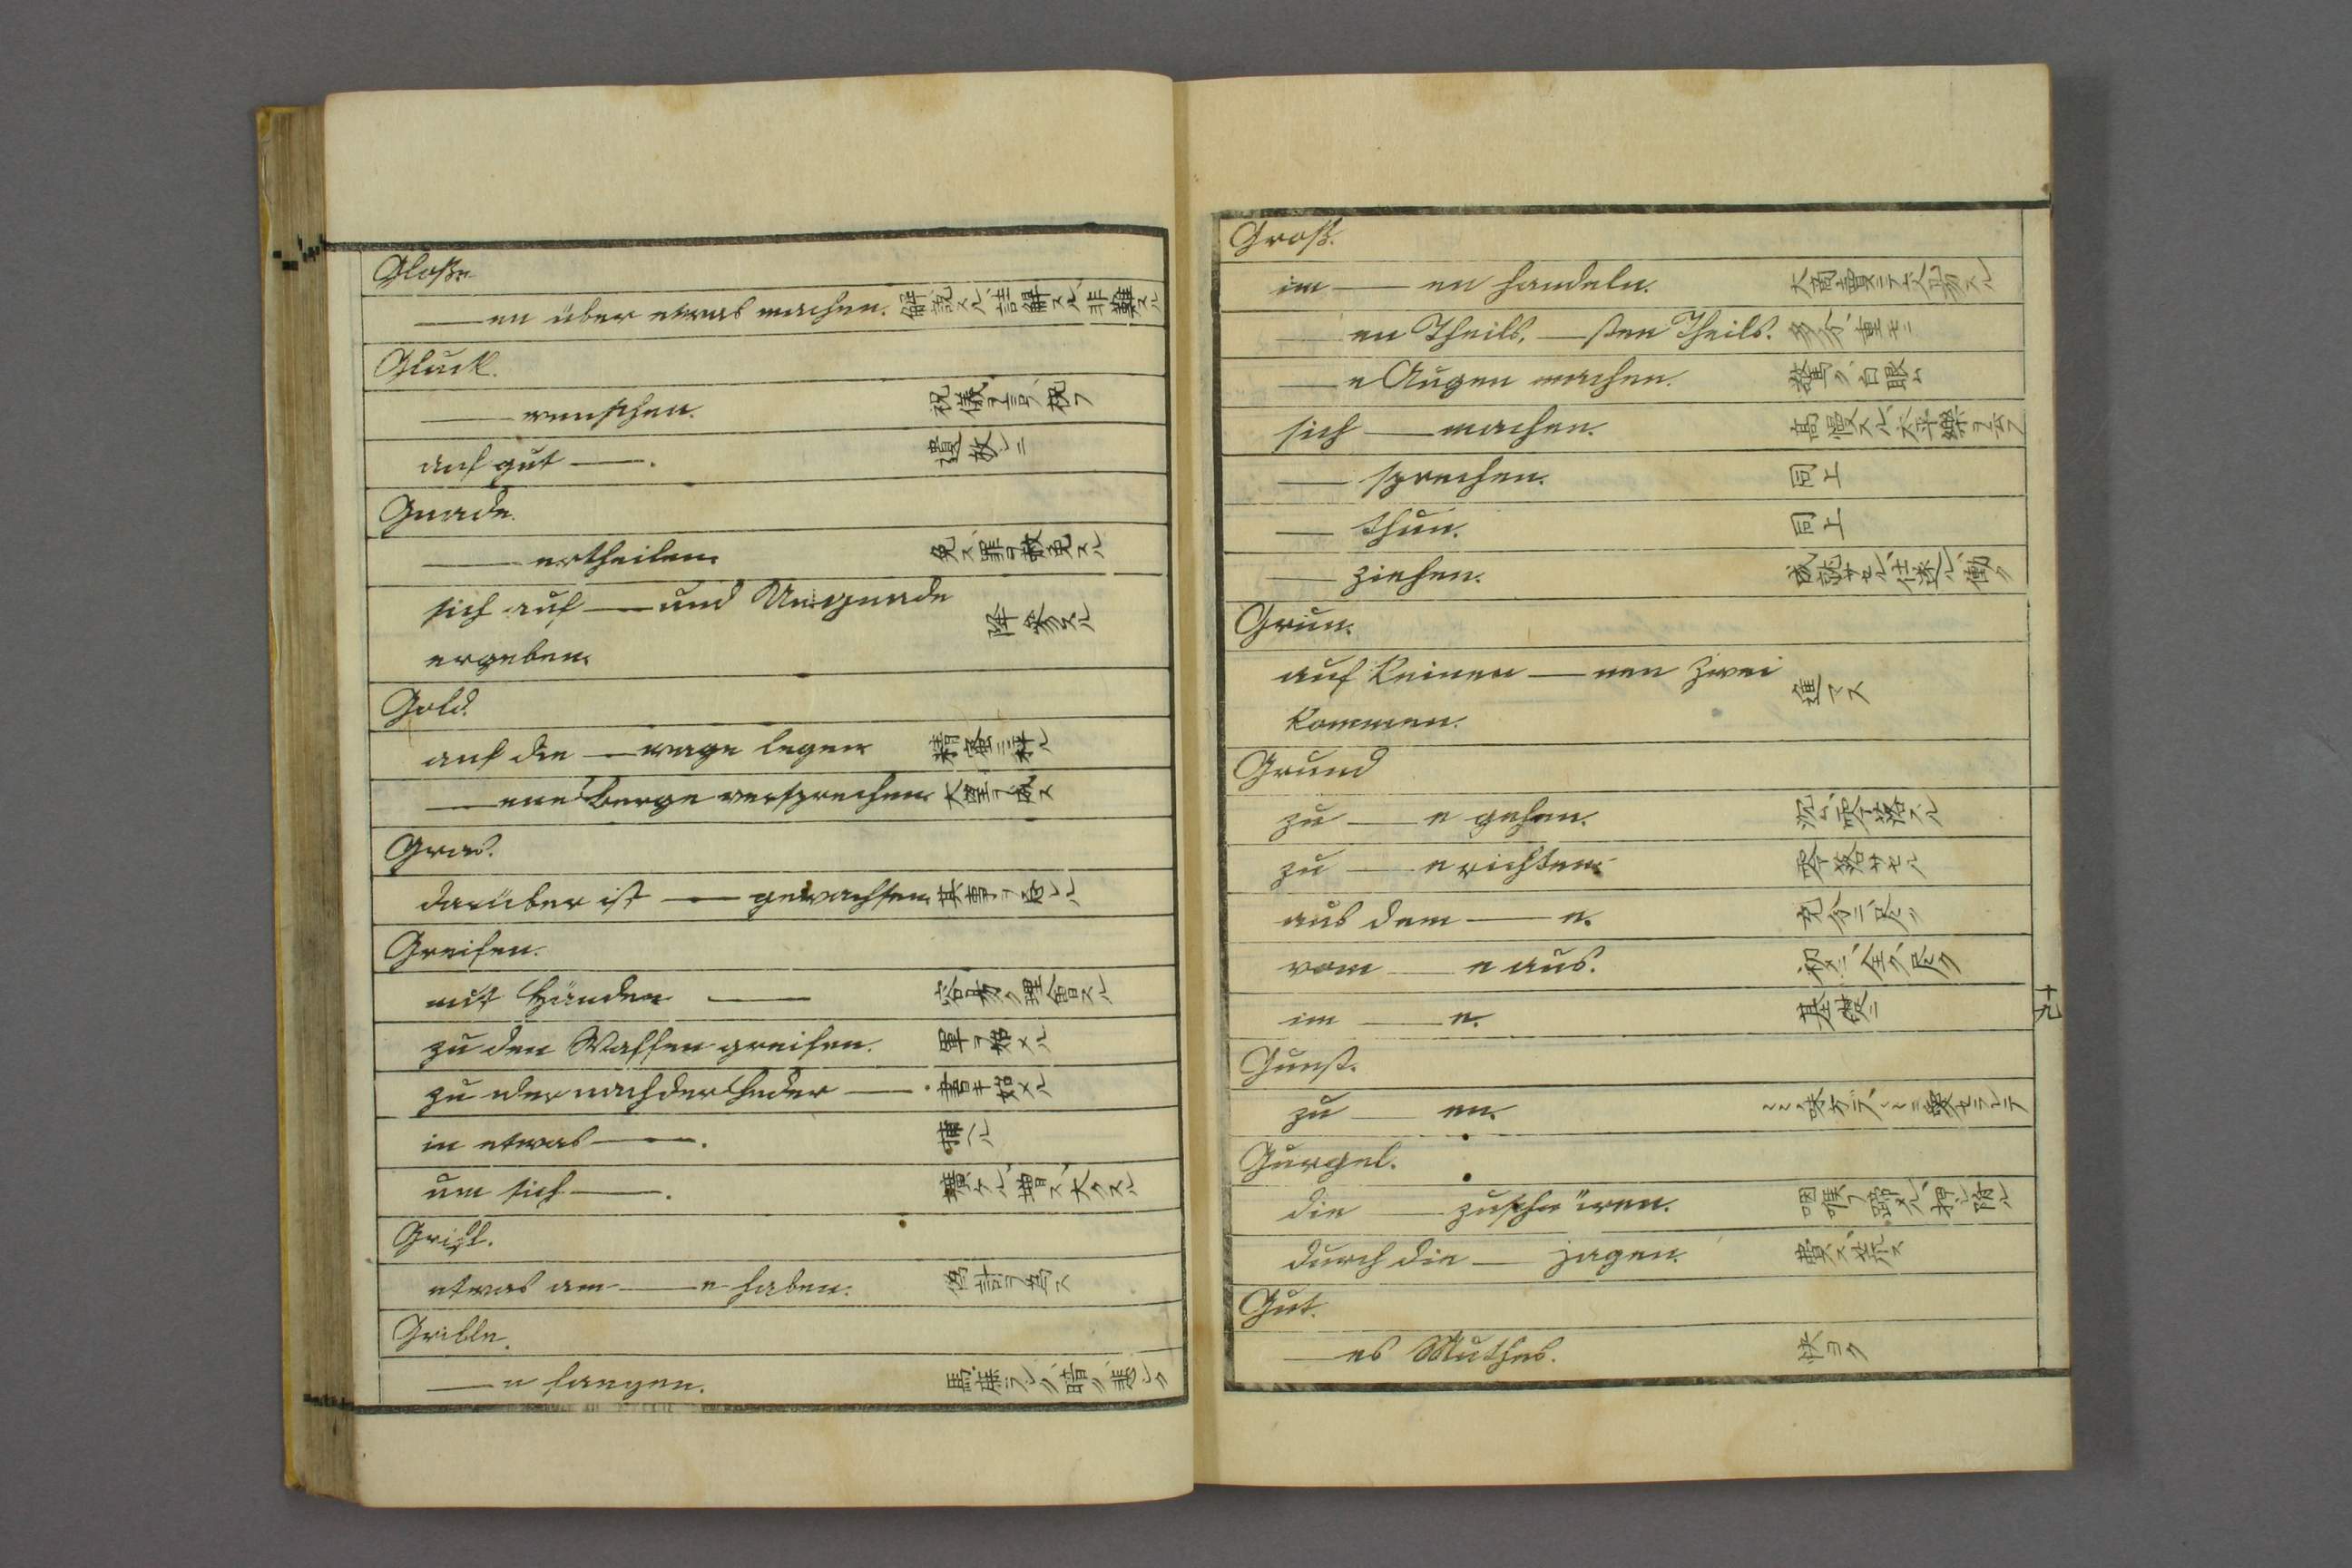 Gloße.
—en über etwas machen. 解説スル、詰解スル、非難スル
Gluck.
— wunschen. 祝儀ヲ言フ、祝フ
auf gut —.
Gnade.
— ertheilen. 免ス、罪ヲ赦免スル
sich auf — und Ungnade 降参スル
ergeben.
Gold.
auf die — wage legen 精密ニ秤ル
—ene Berge versprechen. 大望ヲ成ス
Gras.
darüber ist — gewachsen 其事ヲ忘ル
Greifen.
mit Händen — 容易ク理會スル
zu den Waffen greifen. 軍ヲ始メル
zu oder nach der Feder —. 書キ始メル
in etwas —. 捕ヘル
um sich —. 増ス、大クスル
Griff.
etwas am —e haben.
Grille.
—n fangen. 馬鹿ラシク、暗ク、悲シク
Groß.
im —en handeln. 大商賣ヲ
—en Theils, —sten Theils. 多分、重モニ
—e Augen machen. 驚ク、白眼ム
sich — machen. 高慢スル、太平樂ヲ云フ
— sprechen. 同上
— thun. 同上
— ziehen. 成就サセル、仕遂ル、働ク
Grün.
auf keinen —nen Zwei
kommen.
Grund
zu —e gehen. 沉ム、零落スル
zu —e richten. 零落サセル
aus dem —e. 充分ニ、尽ク
vom —e aus. 初メニ、全ク、尽ク
im —e. 基礎ニ
十九
Gunst.
zu —en.
Gurgel.
die — zuschnüren. 咽喉ヲ締メル、押シ陷ル
durch die — jagen. 費ス、荒ス
Gut.
—es Muthes. 快ヨク